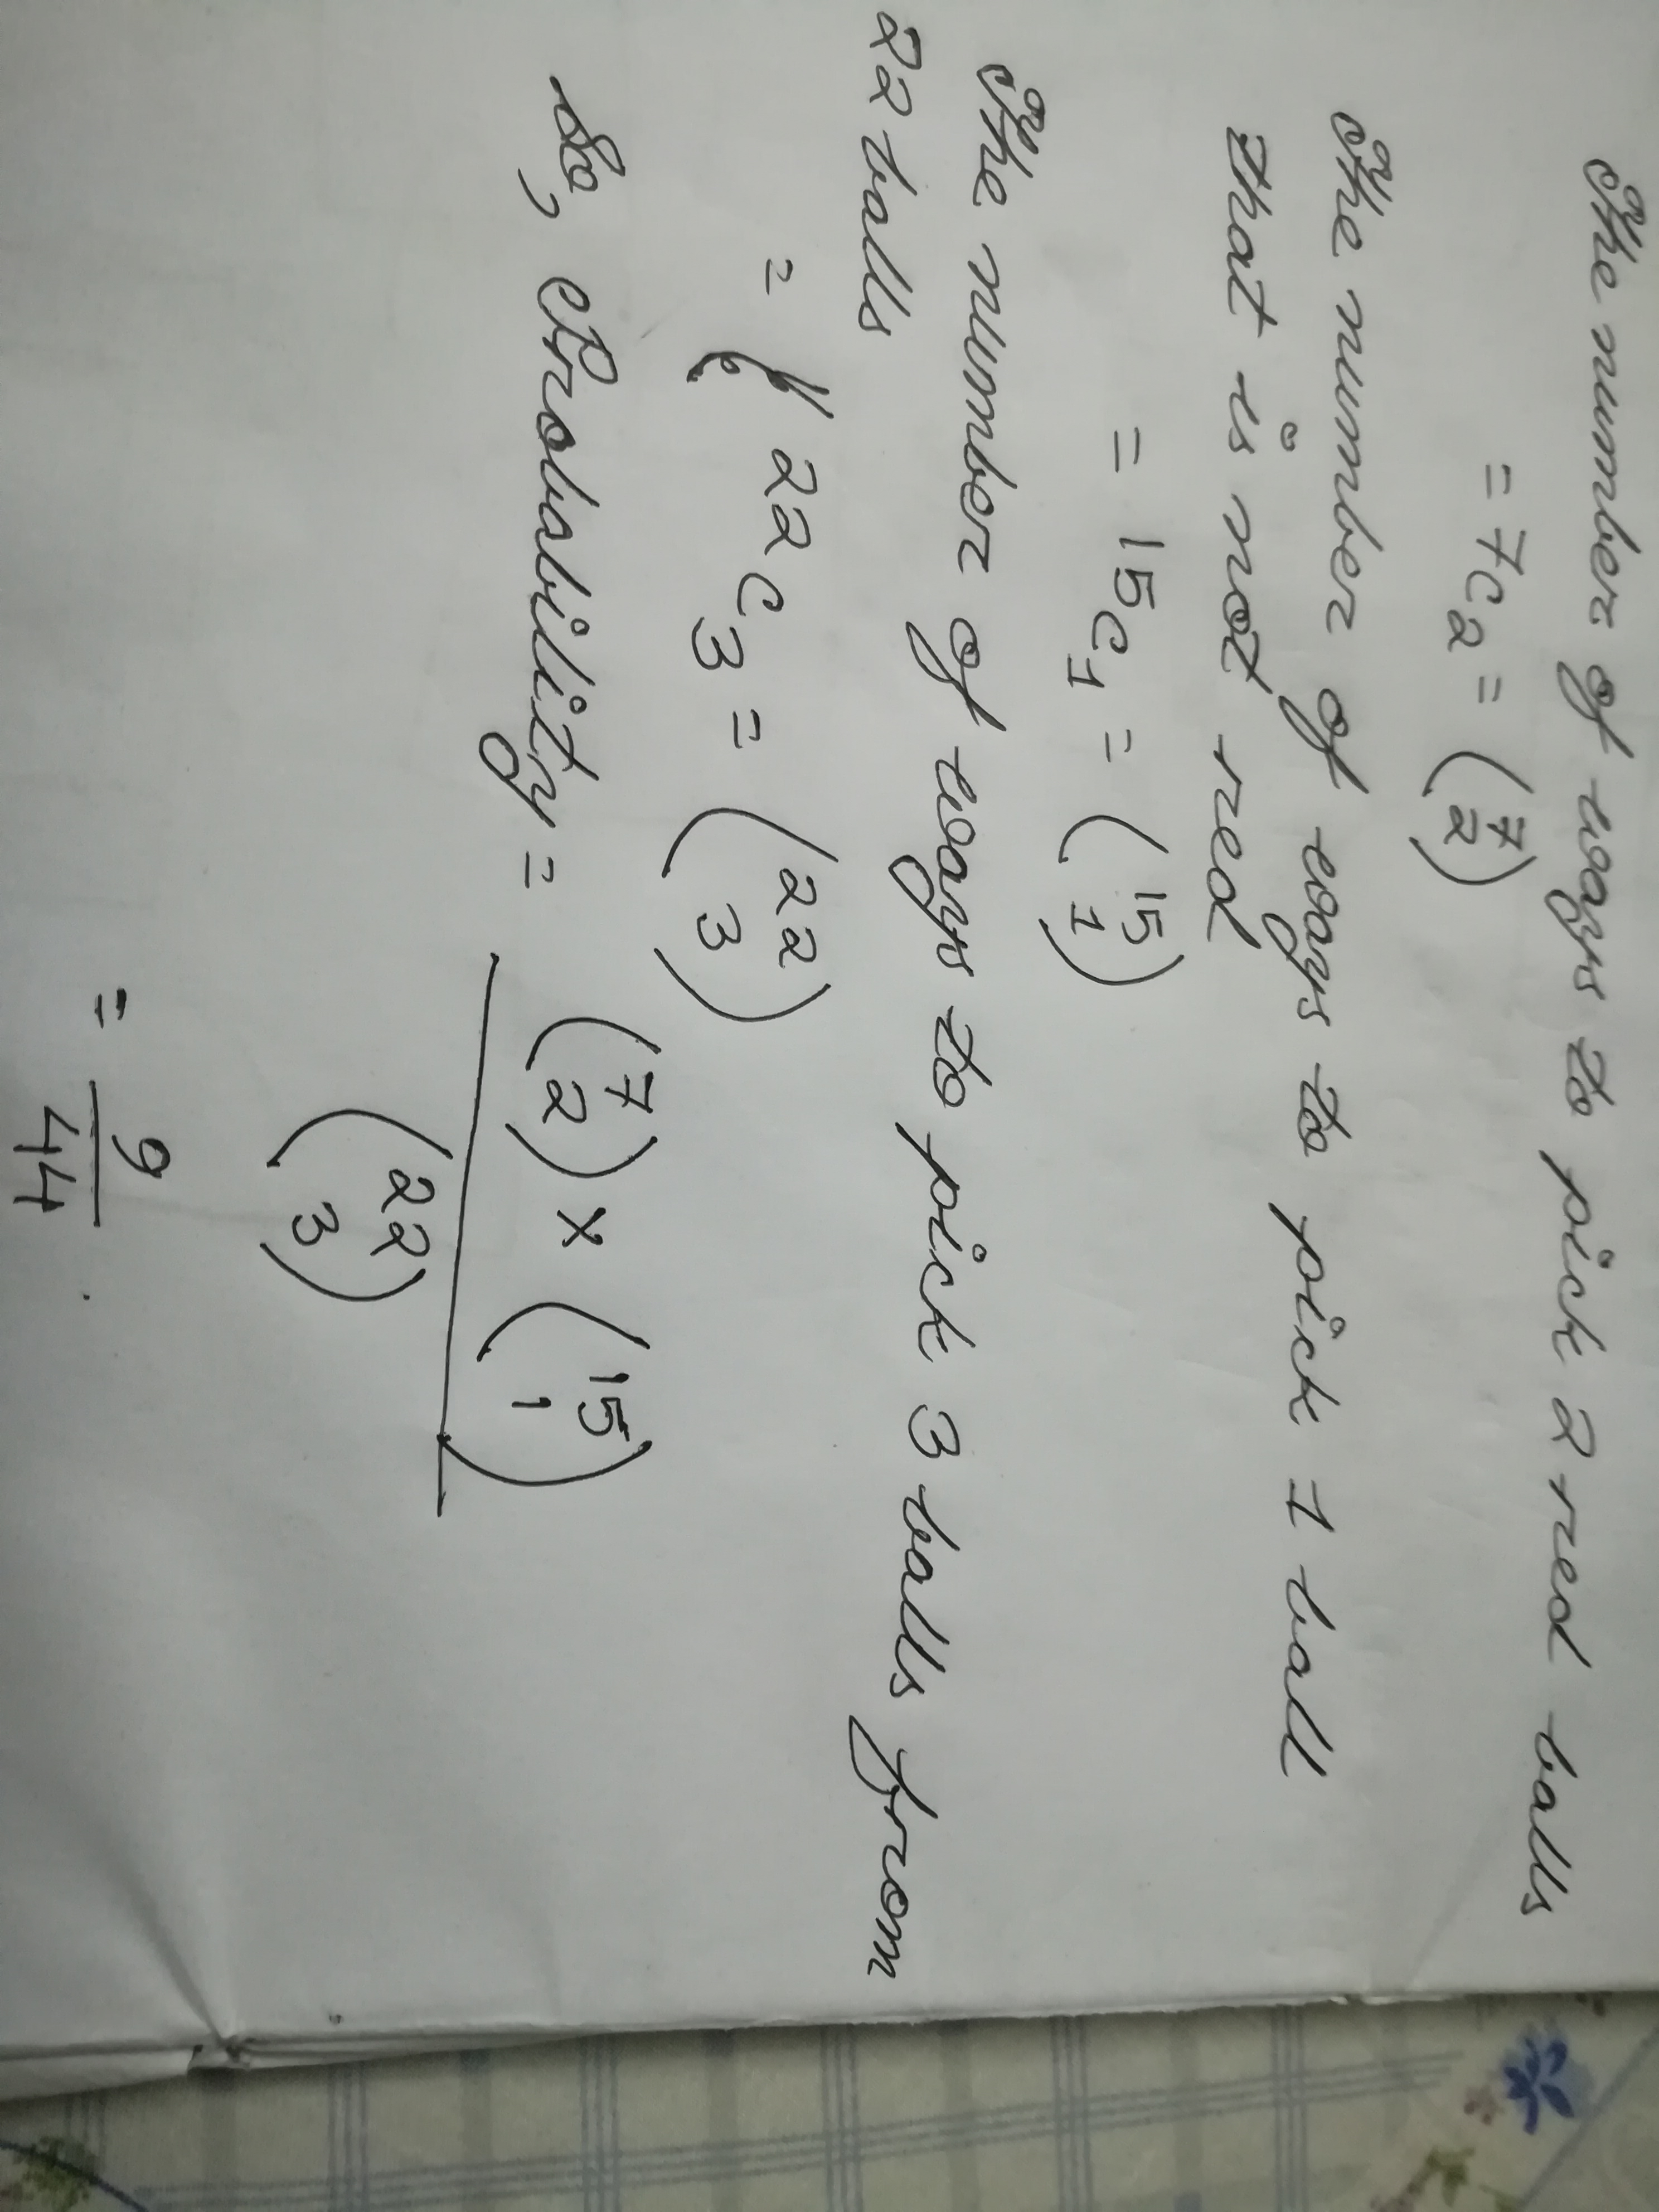 The number of ways to pick 2 red balls
= 7c2 = (7 2)
The number of ways to pick 1 ball
that is not red
= 15c1 = (15 1)
The number of ways to pick 3 balls from
22 balls
= 22c3 = (22 3)
So, Probability = (7 2) × (15 1)
(22 3)
= 9
44